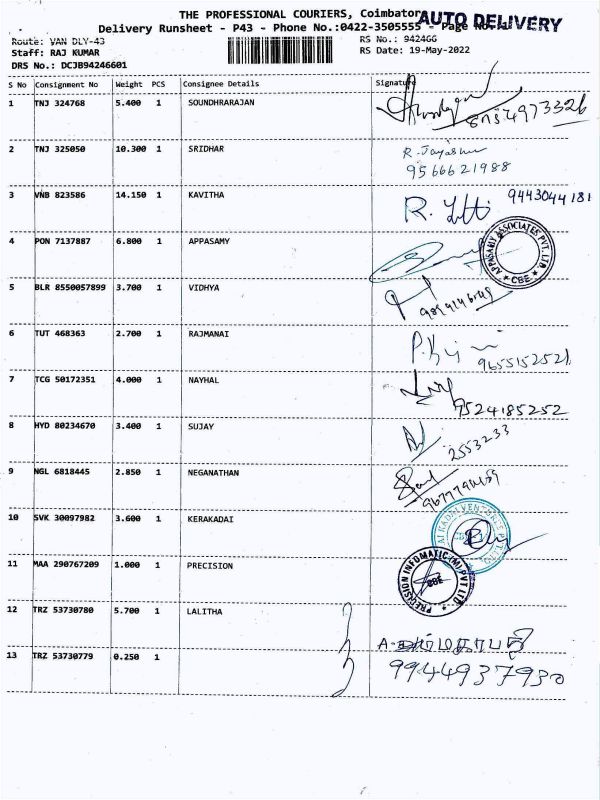 THE PROFESSIONAL COURIERS, Coimbator
AUTO DELIVERY
Delivery Runsheet - P43 - Phone No.:0422-3505555 - Page
Route: VAN DLY-43
RS No.: 942466
Staff: RAJ KUMAR
RS Date: 19-May-2022
DRS No.: DCJB94246601
S No Consignment No Weight PCS Consignee Details Signature
1 TNJ 324768 5.400 1 SOUNDHRARAJAN
2 TNJ 325050 10.300 1 SRIDHAR R. Jayashree
9566621988
3 VNB 823586 14.150 1 KAVITHA 9443044181
4 PON 7137887 6.800 1 APPASAMY
APPASAMY ASSOCIATES PVT. LTD. * CBE *
5 BLR 8550057899 3.700 1 VIDHYA
6 TUT 468363 2.700 1 RAJMANAI
9655152521
7 TCG 50172351 4.000 1 NAYHAL
9524185252
8 HYD 80234670 3.400 1 SUJAY
2553233
9 NGL 6818445 2.850 1 NEGANATHAN
10 SVK 30097982 3.600 1 KERAKADAI
11 MAA 290767209 1.000 1 PRECISION
PRECISION INFOMATIC (M) PVT LTD CBE
12 TRZ 53730780 5.700 1 LALITHA
13 TRZ 53730779 0.250 1
9944937930